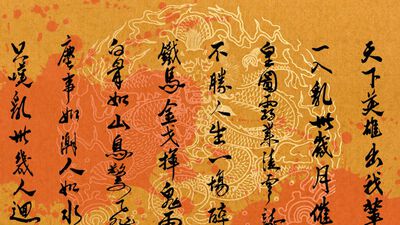 天下英雄出我輩
一入亂世歲月催
皇圖霸業雲
不勝人生一場醉
鐵馬金戈揮鬼雨
白骨如山鳥驚飛
塵事如潮人如水
只嘆亂世幾人迴